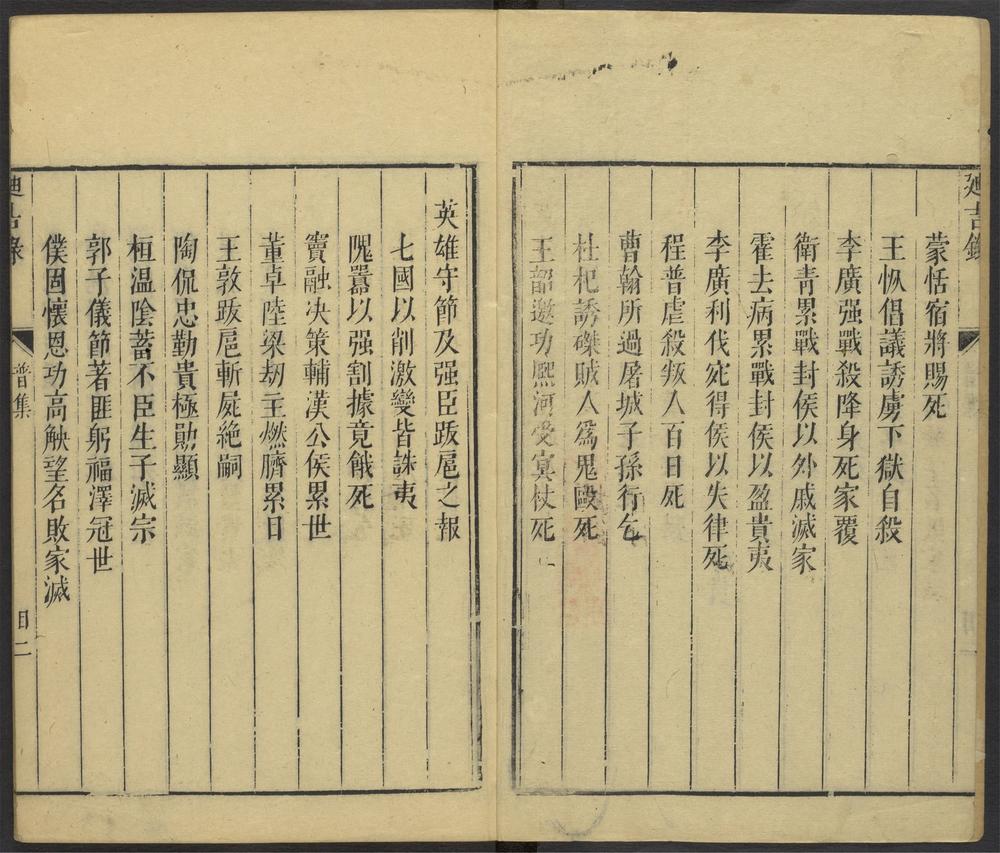 廸吉錄
蒙恬宿將賜死
王恢倡議誘虜下獄自殺
李廣强戰殺降身死家覆
衛靑累戰封侯以外戚滅家
霍去病累戰封侯以盈貴夷
李廣利伐宛得侯以失律死
程普虐殺叛人百日死
曹翰所過屠城子孫行乞
杜杞誘磔賊人爲鬼毆死
王韶邀功熈河受寘杖死
英雄守節及强臣跋扈之報
七國以削激變皆誅夷
隗囂以强割據竟餓死
竇融决策輔漢公侯累世
董卓陸梁刼主燃臍累日
王敦跋扈斬屍絶嗣
陶侃忠勤貴極勛顯
桓温陰蓄不臣生子滅宗
郭子儀節著匪躬福澤冠世
僕固懷恩功高觖望名敗家滅
廸吉錄
普集
目二